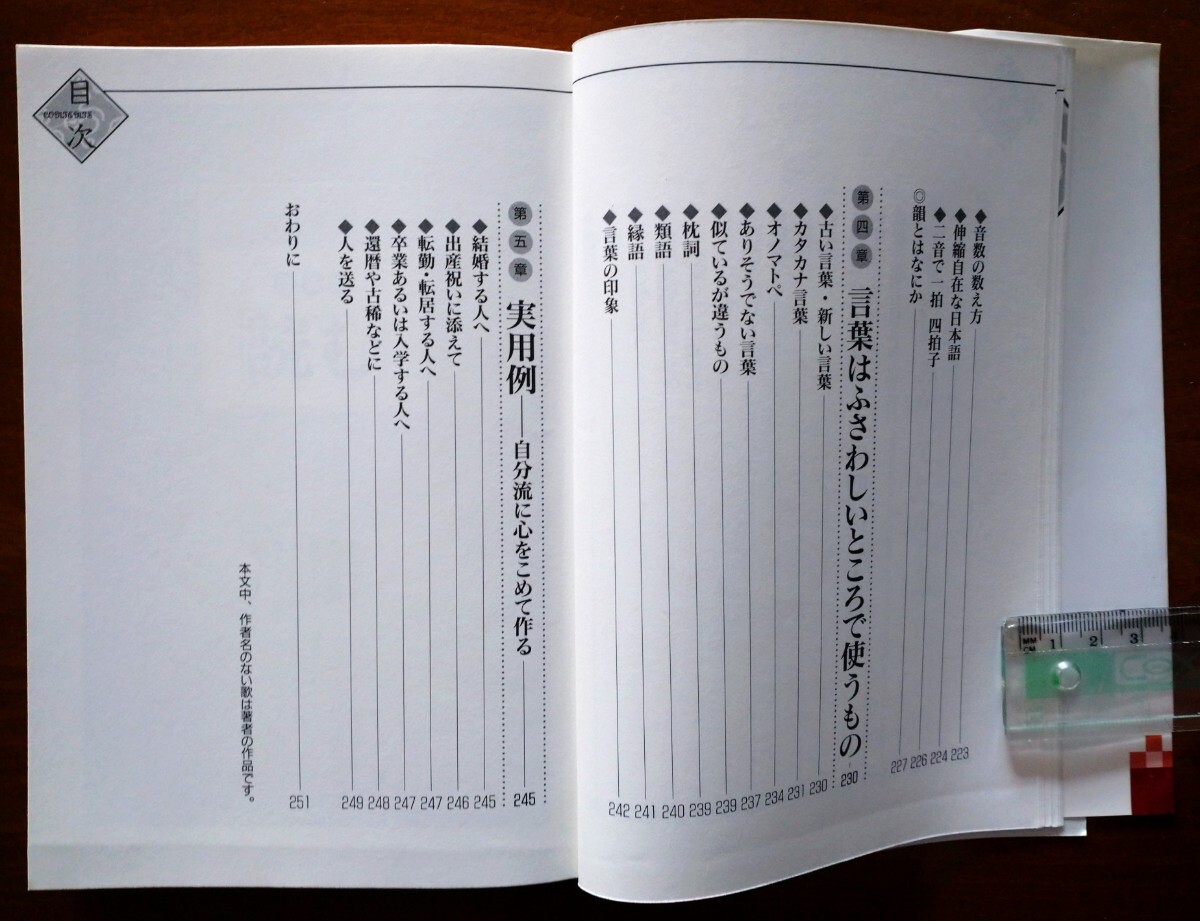 ◆音数の数え方 223
◆伸縮自在な日本語 224
◆二音で一拍 四拍子 226
◎韻とはなにか 227
第四章 言葉はふさわしいところで使うもの 230
◆古い言葉・新しい言葉 230
◆カタカナ言葉 231
◆オノマトペ 234
◆ありそうでない言葉 237
◆似ているが違うもの 239
◆枕詞 239
◆類語 240
◆縁語 241
◆言葉の印象 242
目次
第五章 実用例――自分流に心をこめて作る 245
◆結婚する人へ 245
◆出産祝いに添えて 246
◆転勤・転居する人へ 247
◆卒業あるいは入学する人へ 247
◆還暦や古稀などに 248
◆人を送る 249
おわりに 251
本文中、作者名のない歌は著者の作品です。
MM
CM
1 2 3